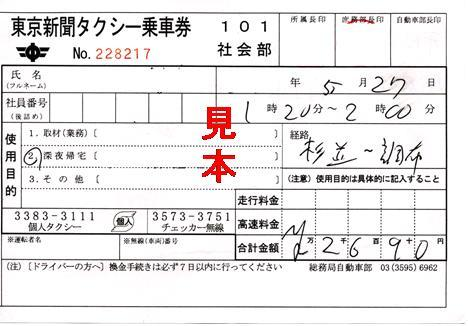 東京新聞タクシー乗車券
No. 228217
101
社会部
所属長印
庶務部長印
自動車部長印
氏名
(フルネーム)
年 5月 27日
社員番号
(後詰め)
1時20分～2時00分
使用目的
1. 取材(業務)〔
2. 深夜帰宅〔
3. その他〔
経路
杉並～調布
(注意) 使用目的は具体的に記入すること
見本
3383-3111
個人タクシー
個人
3573-3751
チェッカー無線
走行料金
高速料金
合計金額
¥ 万2千6百90円
※運転者名
※無線(車両)番号
(注)〔ドライバーの方へ〕換金手続きは必ず7日以内に行ってください
総務局自動車部 03(3595)6962